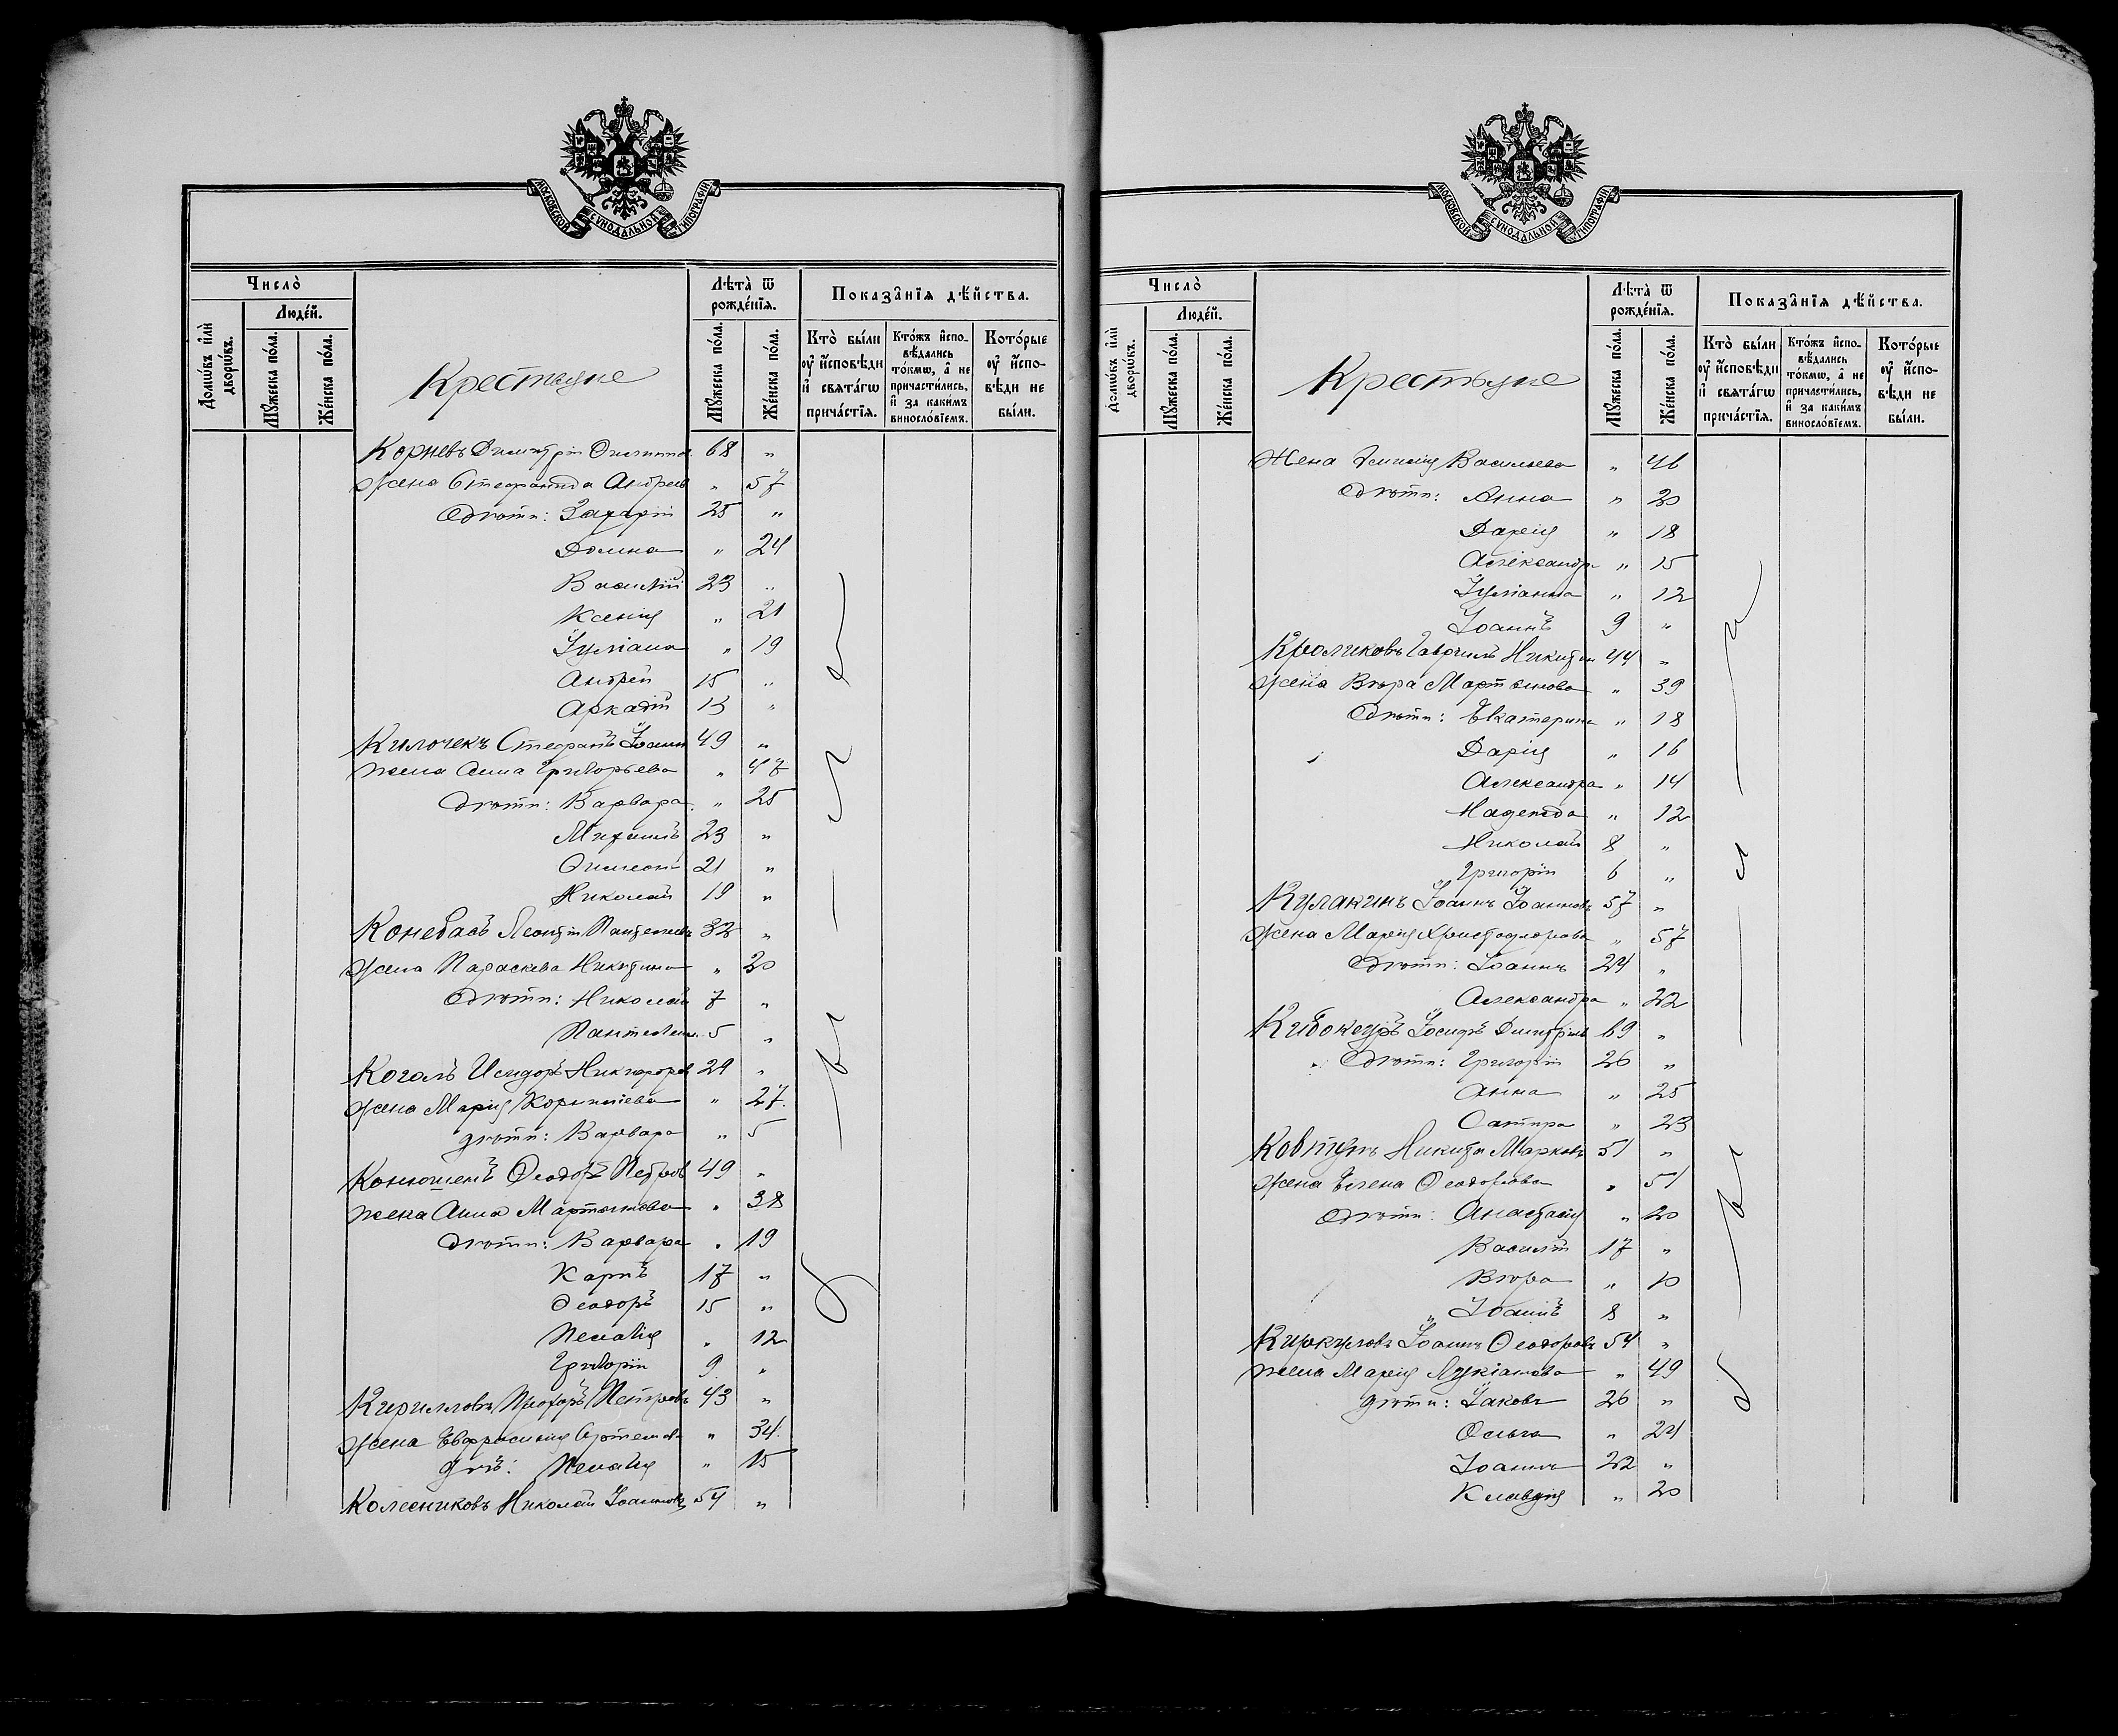 МОСКОВСКОЙ СѴНОДАЛЬНОЙ ТИПОГРАФІИ
Число̀
Людéй.
Домѡ́въ и҆лѝ дворѡ́въ.
Мꙋ́жеска по́ла.
Же́нска по́ла.
Крестьяне
Лѣ́та ѿ рожде́нїѧ.
Мꙋ́жеска по́ла.
Же́нска по́ла.
Показа̑нїѧ дѣ́йства.
Кто̀ бы́ли оу҆ и҆сповѣди и҆ свѧта́гѡ прича́стїѧ.
Кто́жъ и҆сповѣ́дались то́кмѡ, а҆ не причасти́лись, и҆ за каки́мъ винослові́емъ.
Кото́рые оу҆ и҆сповѣди не бы́ли.
Корневъ Димитрій 68 "
Жена Стефанида Андреев " 57
Дѣти: Захарій 25 "
Домна " 24
Василій 23 "
Ксенія " 21
Іуліана " 19
Андрей 15 "
Аркадій 13 "
Килочекъ Стефанъ Іоанн 49 "
жена Анна Григорьева " 47
Дѣти: Варвара " 25
Михаилъ 23 "
Симеонъ 21 "
Николай 19 "
Коневасъ Леонтій Пантелеев 32 "
Жена Параскева Никитина " 20
Дѣти: Николай 7 "
Пантелеим. 5 "
Когалъ Исидоръ Никифоров 29 "
Жена Марія Корнилиева " 27
дѣти: Варвара " 5
Конюшенъ Ѳеодоръ Петров 49 "
жена Анна Мартынова " 38
Дѣти: Варвара " 19
Карпъ 17 "
Ѳеодоръ 15 "
Пелагія " 12
Григорій 9 "
Кирилловъ Прохоръ Петровъ 43 "
Жена Евфросинія Артемов " 34
дѣт: Пелагія " 15
Колесниковъ Николай Іоанновъ 54 "
были
МОСКОВСКОЙ СѴНОДАЛЬНОЙ ТИПОГРАФІИ
Число̀
Людéй.
Домѡ́въ и҆лѝ дворѡ́въ.
Мꙋ́жеска по́ла.
Же́нска по́ла.
Крестьяне
Лѣ́та ѿ рожде́нїѧ.
Мꙋ́жеска по́ла.
Же́нска по́ла.
Показа̑нїѧ дѣ́йства.
Кто̀ бы́ли оу҆ и҆сповѣди и҆ свѧта́гѡ прича́стїѧ.
Кто́жъ и҆сповѣ́дались то́кмѡ, а҆ не причасти́лись, и҆ за каки́мъ винослові́емъ.
Кото́рые оу҆ и҆сповѣди не бы́ли.
Жена Васильева " 46
Дѣти: Анна " 20
Дарія " 18
Александр " 15
Іуліанна " 12
Іоаннъ 9 "
Кроликовъ Гавриилъ Никитин 44 "
Жена Вѣра Мартынова " 39
Дѣти: Екатерина " 18
Дарія " 16
Александра " 14
Надежда " 12
Николай 8 "
Григорій 6 "
Кулакинъ Іоаннъ Іоанновъ 57 "
Жена Марія Христофорова " 57
Дѣти: Іоаннъ 24 "
Александра " 22
Іосифъ Димитріев 69 "
Дѣти: Григорій 26 "
Анна " 25
" 23
Ковтунъ Никита Марковъ 51 "
Жена Елена Ѳеодорова " 51
Дѣти: Анастасія " 20
Василій 17 "
Вѣра " 10
Іоаннъ 8 "
Киркуловъ Іоаннъ Ѳеодоровъ 54 "
жена Марія Лукіанова " 49
дѣти: Іаковъ 26 "
Ольга " 24
Іоаннъ 22 "
Клавдія " 20
были